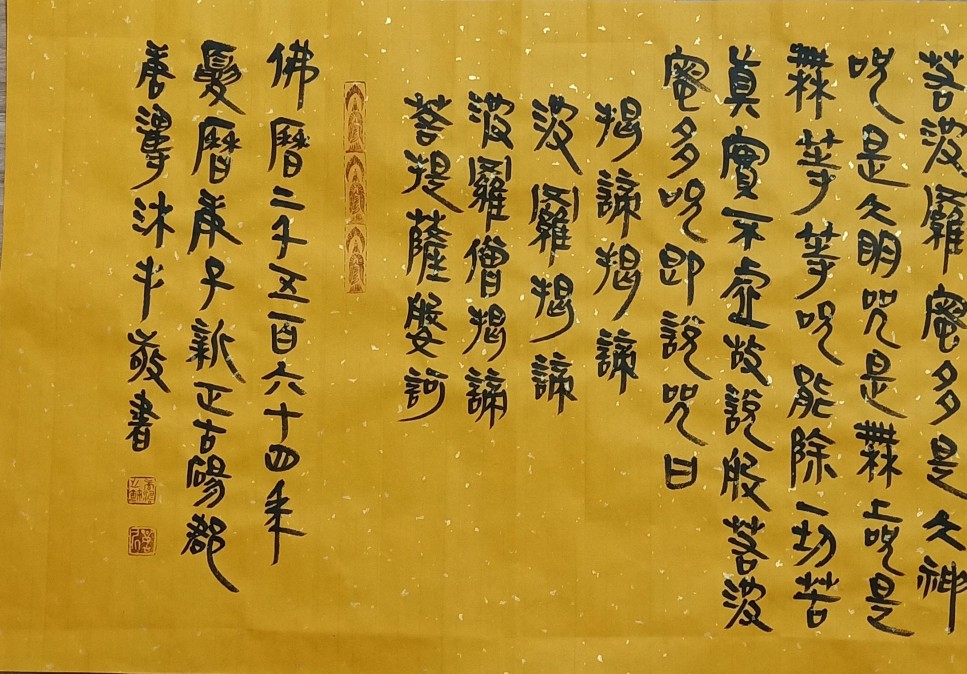 若波羅蜜多是大神
呪是大明咒是無上呪是
無等等呪能除一切苦
真實不虛故說般若波
蜜多呪即說咒曰
揭諦揭諦
波羅揭諦
波羅僧揭諦
菩提薩婆訶
佛曆二千五百六十四年
夏曆庚子新正古碭郡
沐手敬書